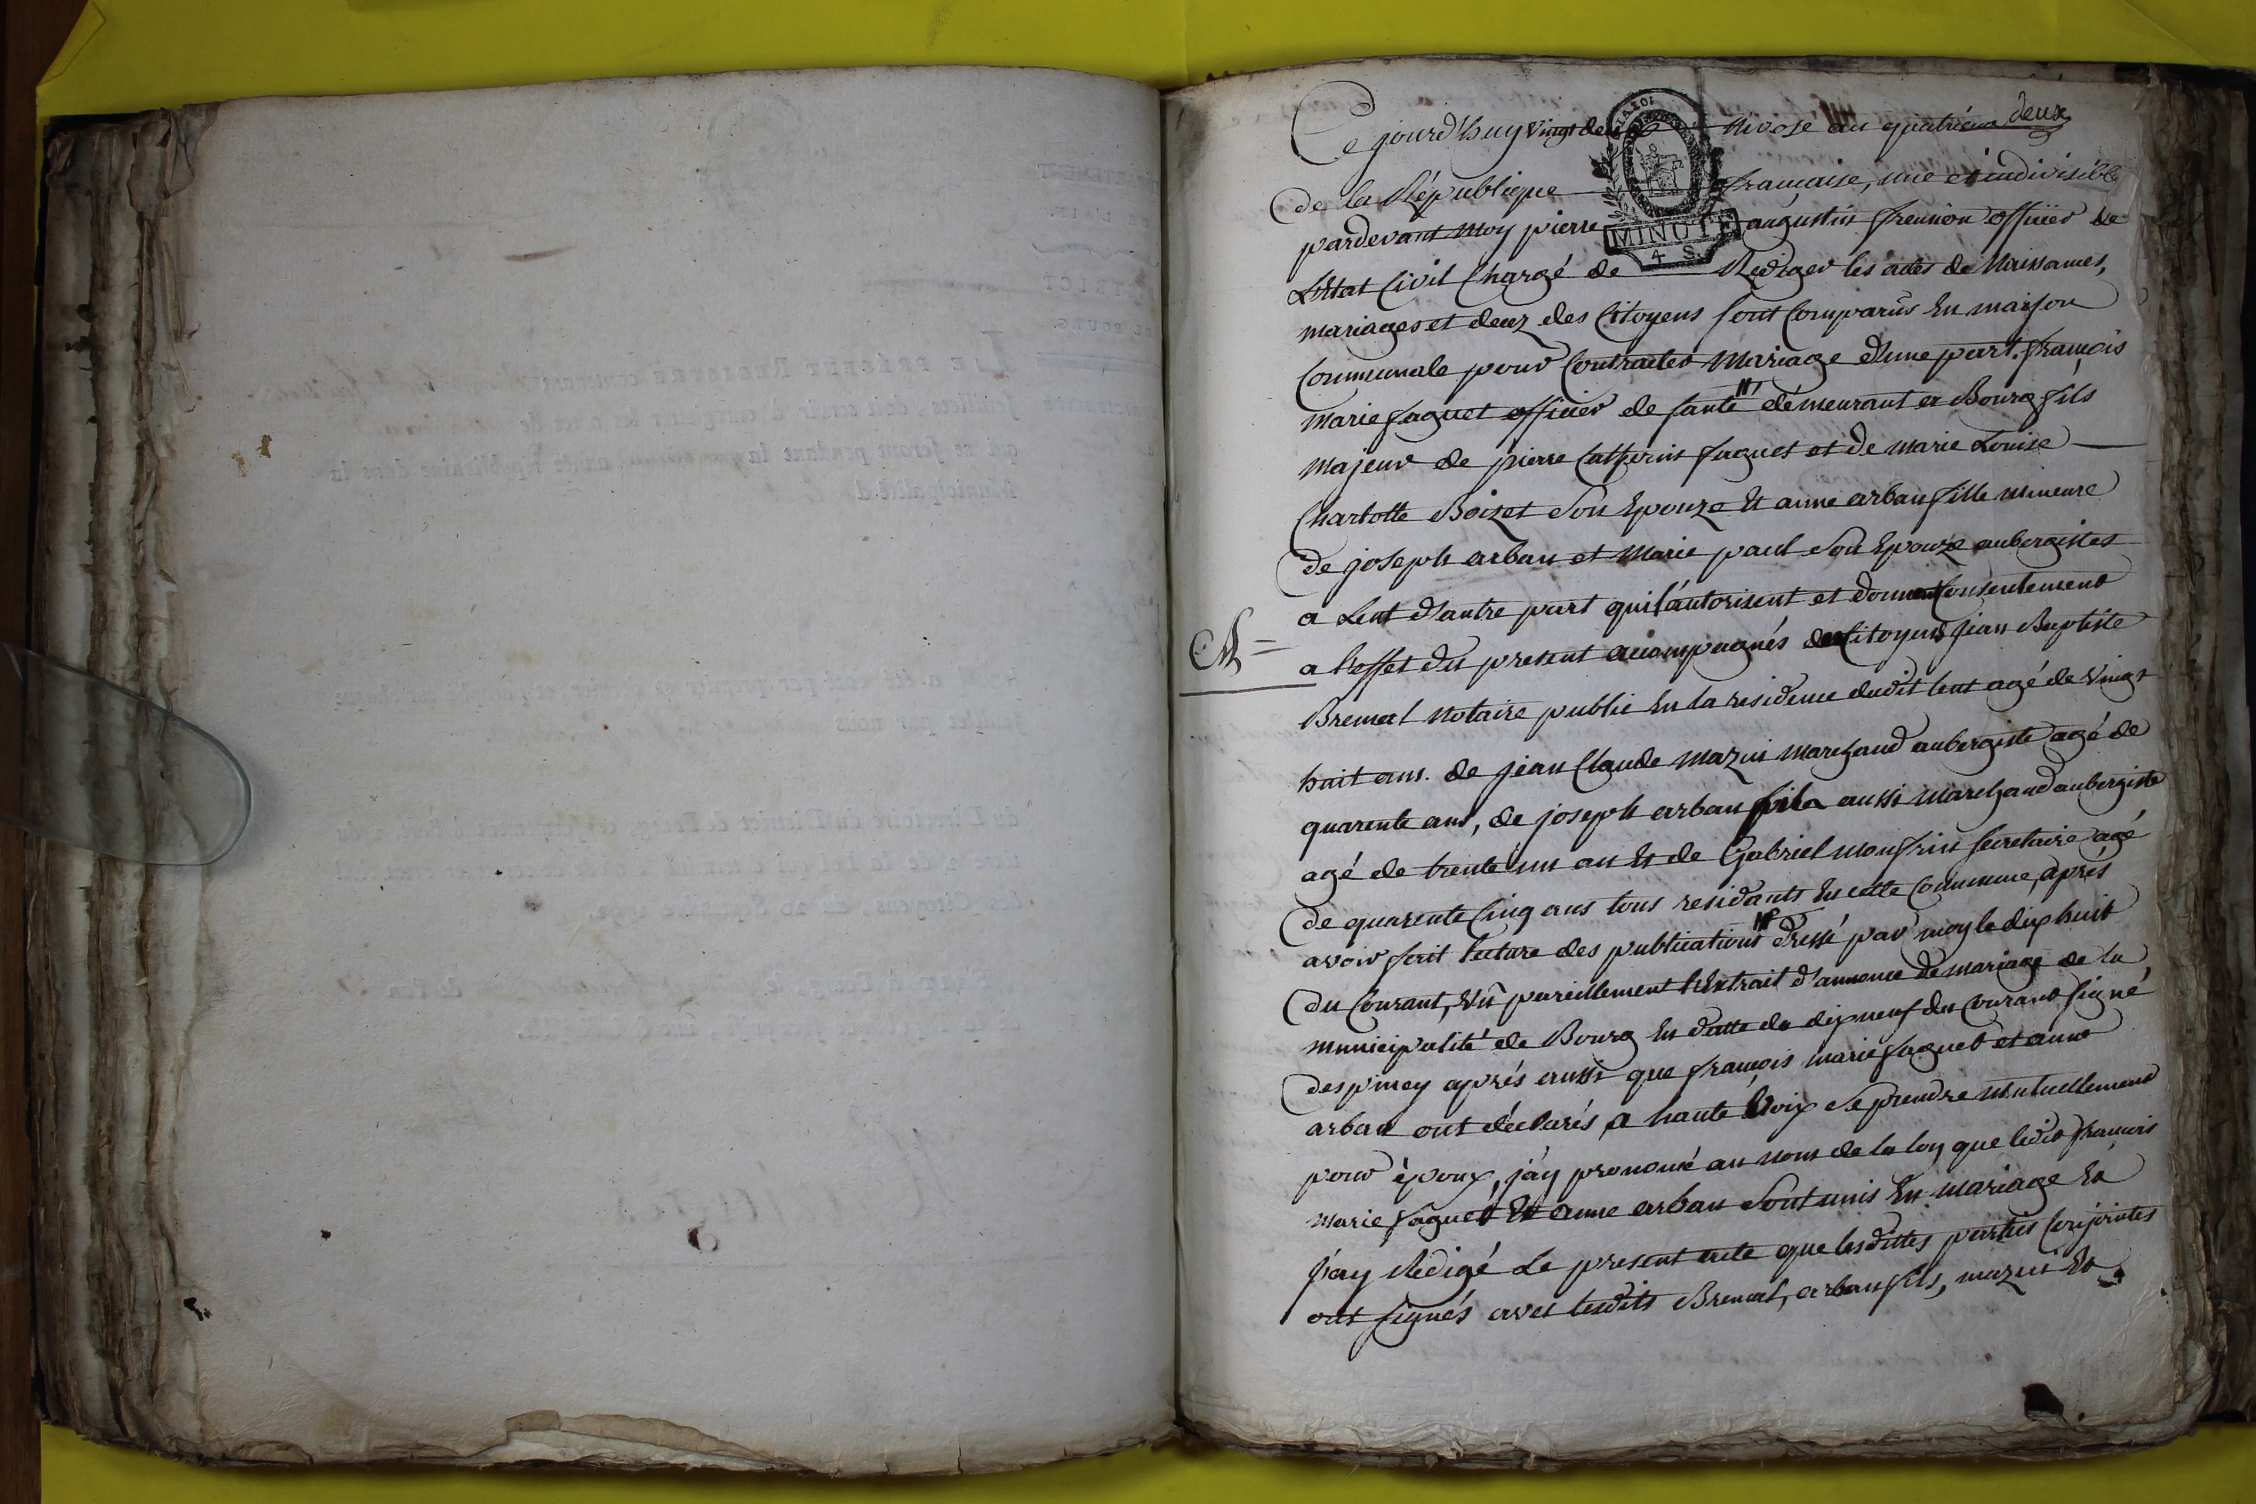 deux
Ce jourd'huy vingt deux nivose an quatrieme
de la République française, une et indivisible
pardevant moy pierre augustin frenion officier de
L'Etat Civil Chargé de Rediger les actes de Naissances,
mariages et decez des Citoyens sont Comparus En maison
Communale pour Contracter Mariage d'une part. françois
marie faguet officier de santé demeurant a Bourg fils
majeur de pierre Catherin faguet et de marie Louise
Charlotte Boizet son Epouze Et anne arban fille mineure
de joseph arban et Marie paul son Epouze aubergistes
a Lent d'autre part qui l'autorisent et donnent Consentement
a l'effet du present accompagnés des Citoyens jean Baptiste
Bremal Notaire public En la residence dudit lent agé de vingt
huit ans. de jean Claude Mazui Marchand aubergiste agé de
quarente ans, de joseph arban fils aussi Marchand aubergiste
agé de trente un an Et de Gabriel Monfrin secretaire agé
de quarente Cinq ans tous residants En cette Commune, aprés
avoir fait lecture des publications Dressé par moy le dix huit
du Courant, Vû pareillement l'Extrait d'annonce de mariage de la
municipalité de Bourg En datte du dix neuf du Courant signé
despiney aprés aussi que françois marie faguet et anne
arban ont déclarés a haute Voix se prendre mutuellement
pour époux, j'ay prononcé au nom de la loy que ledit françois
Marie faguet Et anne arban sont unis En mariage Et
j'ay Redigé Le present acte que lesdittes parties Conjointes
ont signés avec lesdits Bremal, arban fils, mazui Et
M
MINUTE
4 S.